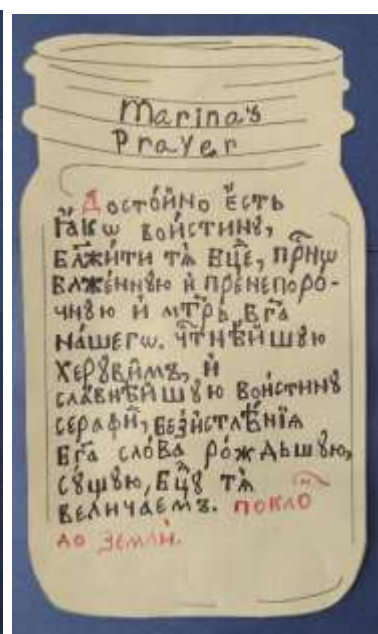 Marina's
Prayer
Досто́йно є҆́сть
ꙗ҆́кѡ вои́стинꙋ,
бл҃жи́ти тѧ̀ бц҃е, при́снѡ
бл҃же́ннꙋю и҆ пренепоро́-
чнꙋю и҆ мт҃рь бг҃а
на́шегѡ. чⷭ҇тнѣ́йшꙋю
херꙋви̑мъ, и҆
сла́внѣйшꙋю вои́стинꙋ
серафи̑м, без̾истлѣ́нїѧ
бг҃а сло́ва ро́ждьшꙋю,
сꙋ́щꙋю, бц҃ꙋ тѧ̀
велича́емъ. покло́н
до земли̑.